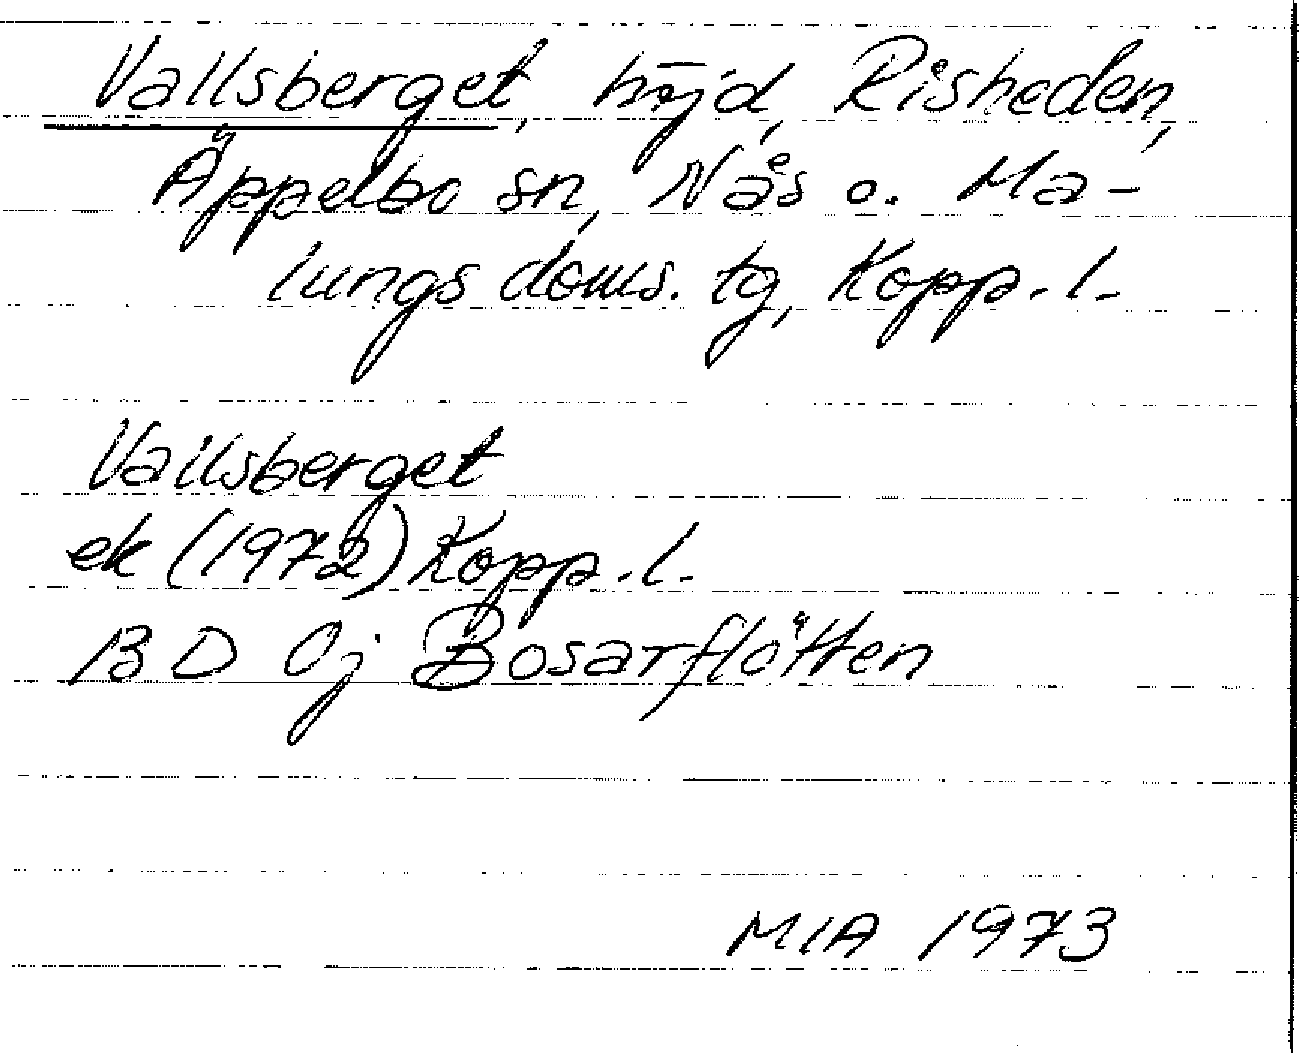 Vallsberget, höjd, Risheden,
Äppelbo sn, Nås o. Ma-
lungs doms. tg, Kopp. l.
Vallsberget
ek (1972) Kopp. l.
BD 0j Bosarflötten
MIA 1973